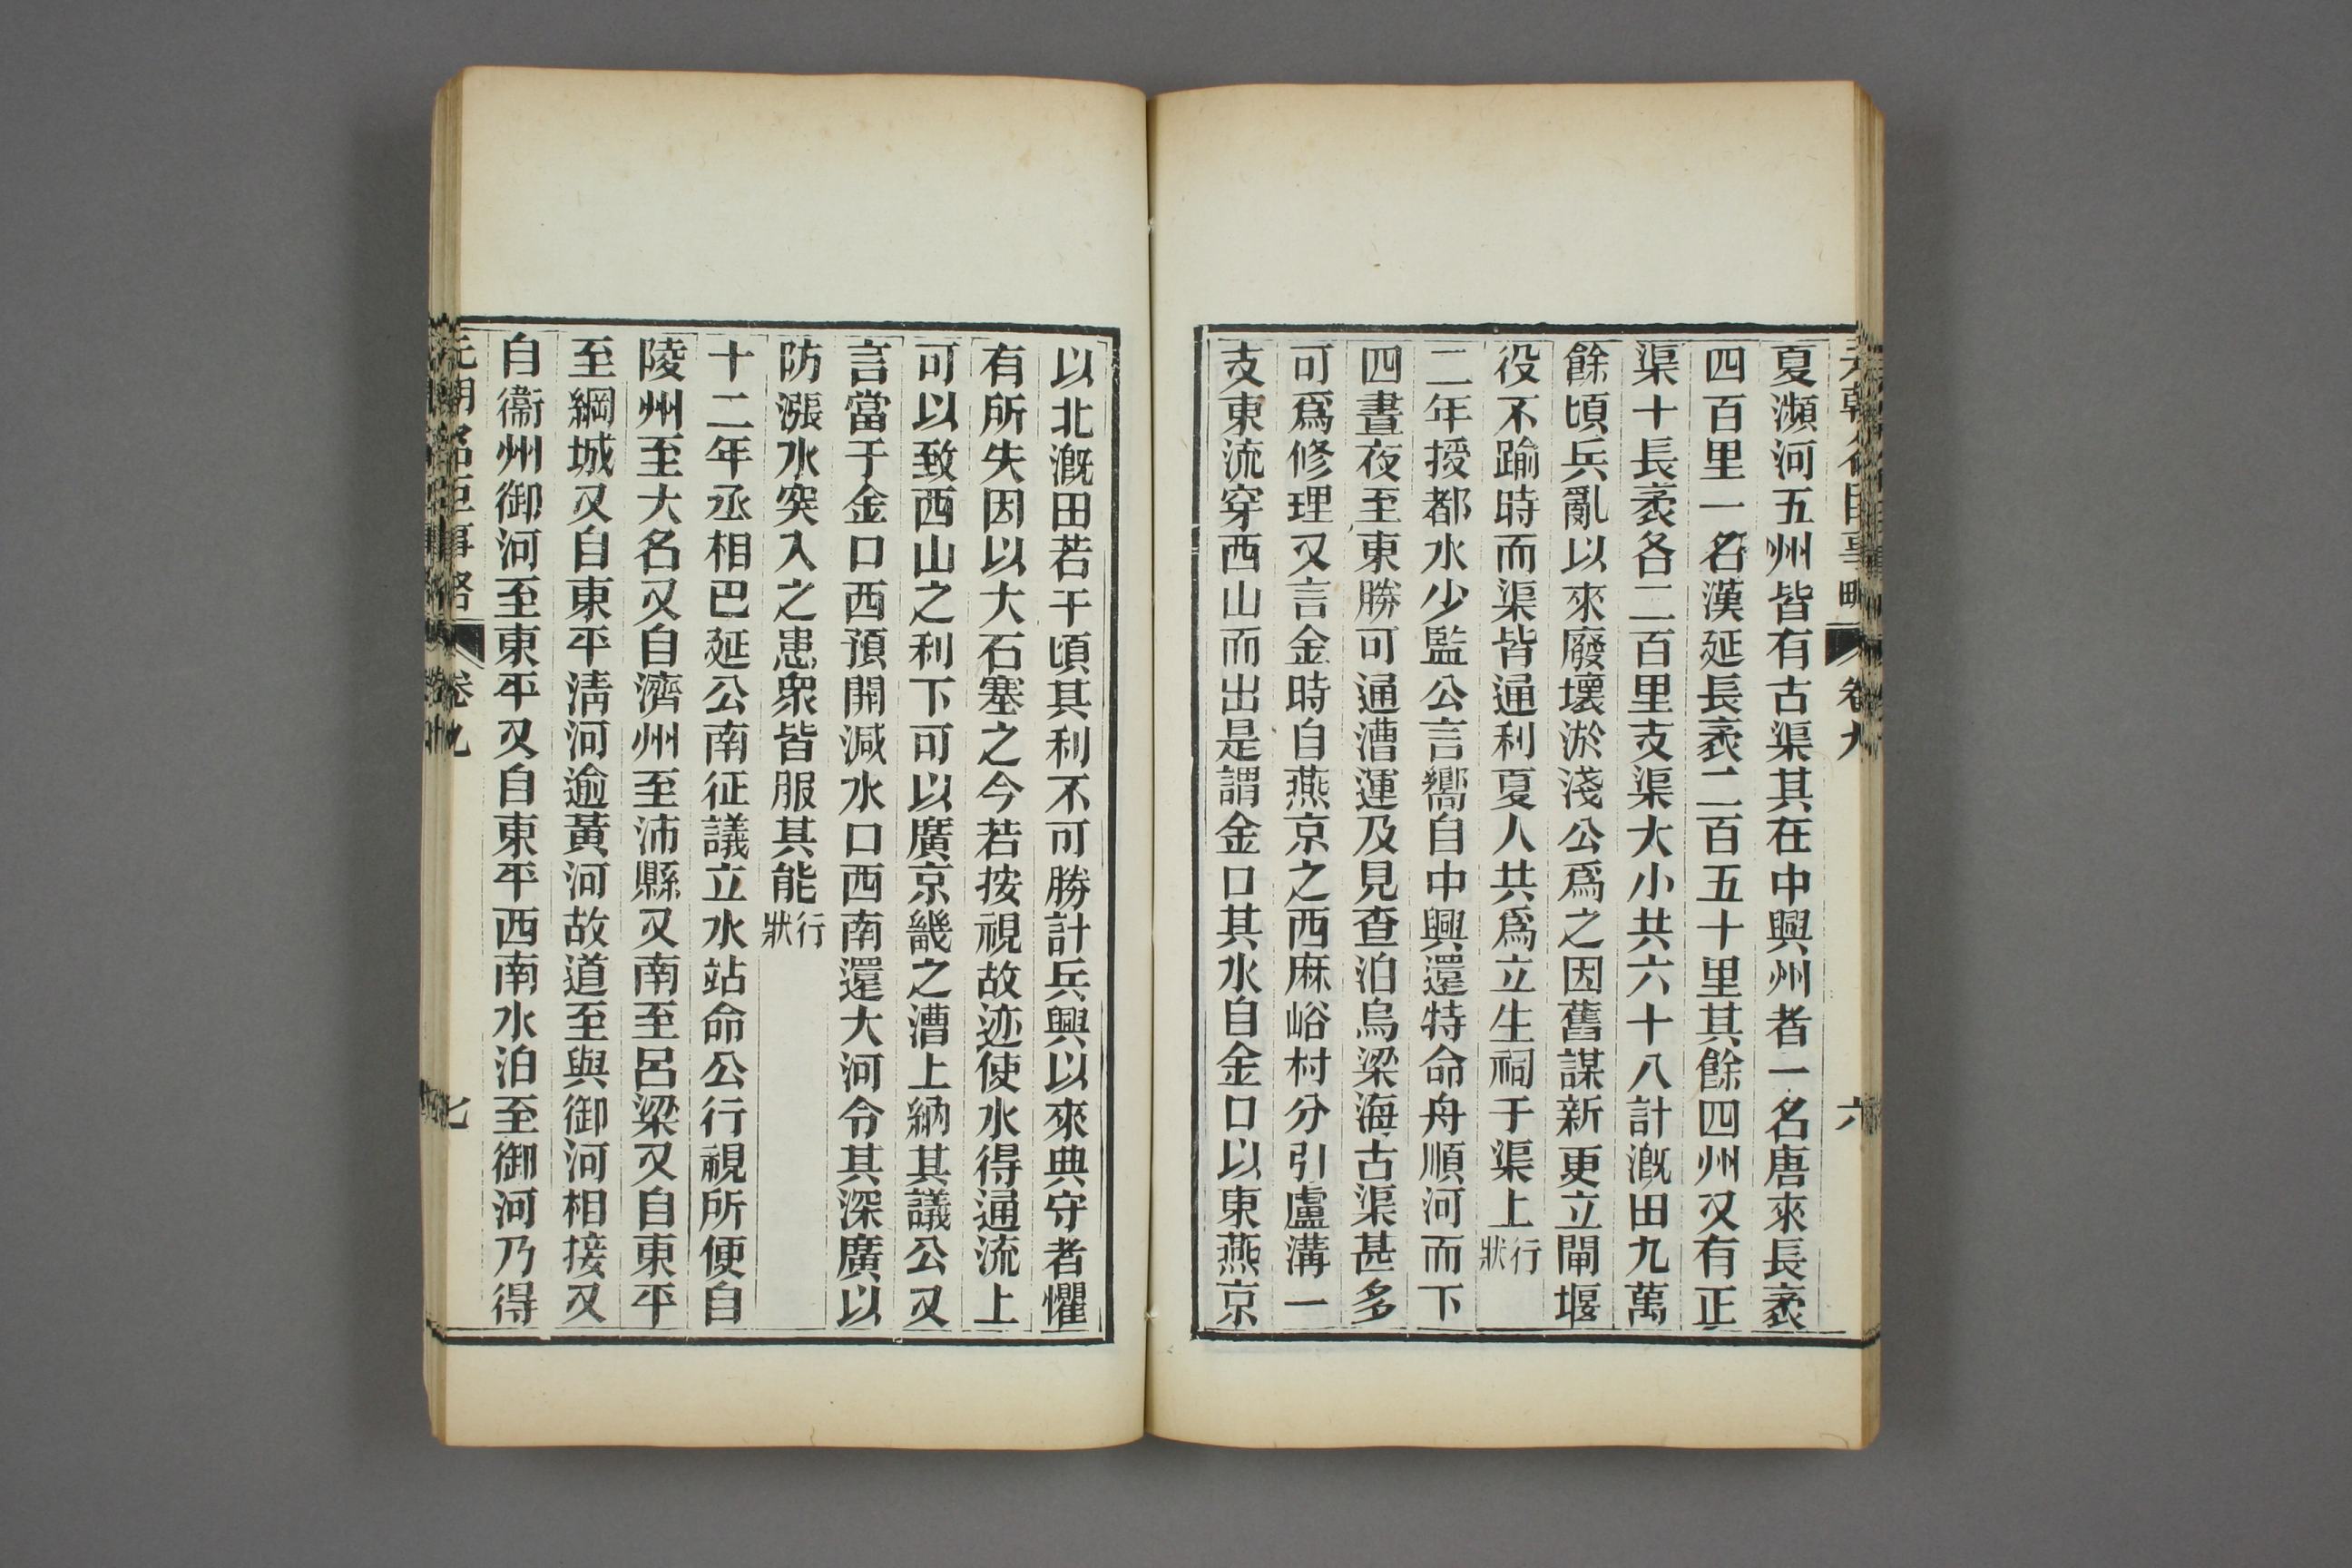 元朝名臣事略 卷九 六
夏瀕河五州皆有古渠其在中興州者一名唐來長袤
四百里一名漢延長袤二百五十里其餘四州又有正
渠十長袤各二百里支渠大小共六十八計漑田九萬
餘頃兵亂以來廢壞淤淺公爲之因舊謀新更立閘堰
役不踰時而渠皆通利夏人共爲立生祠于渠上行狀
二年授都水少監公言嚮自中興還特命舟順河而下
四晝夜至東勝可通漕運及見查泊烏梁海古渠甚多
可爲修理又言金時自燕京之西麻峪村分引盧溝一
支東流穿西山而出是謂金口其水自金口以東燕京
以北漑田若干頃其利不可勝計兵興以來典守者懼
有所失因以大石塞之今若按視故迹使水得通流上
可以致西山之利下可以廣京畿之漕上納其議公又
言當于金口西預開減水口西南還大河令其深廣以
防漲水突入之患衆皆服其能行狀
十二年丞相巴延公南征議立水站命公行視所便自
陵州至大名又自濟州至沛縣又南至呂梁又自東平
至綱城又自東平淸河逾黃河故道至與御河相接又
自衞州御河至東平又自東平西南水泊至御河乃得
元朝名臣事略 卷九 七